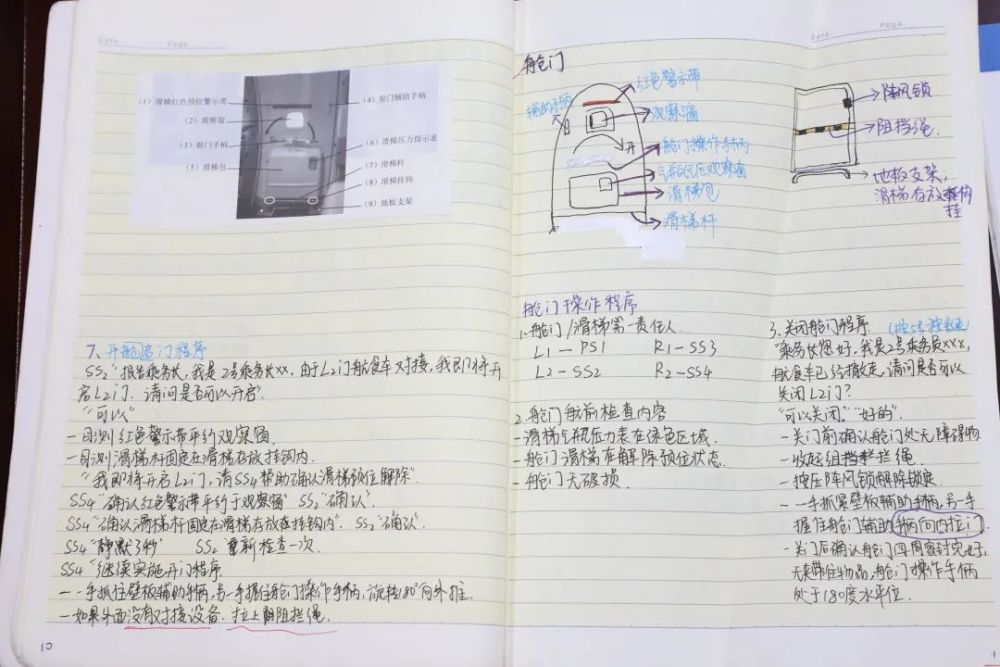 Date. Page.
(1) 滑梯红色预位警示带
(2) 观察窗
(3) 舱门手柄
(5) 滑梯包
(4) 舱门辅助手柄
(6) 滑梯压力指示表
(7) 滑梯杆
(8) 滑梯挂钩
(9) 地板支架
7、开舱门程序
SS2"报告乘务长,我是2号乘务长xx,由于L2门航食车对接,我即将开
启L2门,请问是否可以开启".
"可以"
-目测红色警示带平行观察窗.
-目测滑梯杆固定在滑梯存放挂钩内.
"我即将开启L2门,请SS4帮助确认滑梯预位解除".
SS4"确认红色警示带平行于观察窗" SS2"确认".
SS4"确认滑梯杆固定在滑梯存放挂钩内". SS2"确认".
SS4"静默3秒" SS2 重新检查一次.
SS4"继续实施开门程序
-一手抓住壁板辅助手柄,另一手握住舱门操作手柄,旋转180°向外推.
-如果外面没有对接设备,拉上阻拦绳.
10
Date. Page.
舱门
辅助手柄
红色警示带
观察窗
开
舱门操作手柄
气瓶气压观察窗
滑梯包
滑梯杆
阵风锁
阻挡绳.
地板支架,
滑梯存放挂钩
舱门操作程序
1.舱门/滑梯第一责任人
L1 — PS1 R1 - SS3
L2 - SS2 R2 - SS4
2.舱门航前检查内容
-滑梯气瓶压力表在绿色区域.
-舱门滑梯在解除预位状态.
-舱门无破损.
3.关闭舱门程序.
"乘务长您好,我是2号乘务员xxx,
航食车已经撤走,请问是否可以
关闭L2门?
"可以关闭." "好的".
-关门前确认舱门处无障碍物
-收起阻拦绳.
-按压阵风锁解除锁定.
-一手抓紧壁板辅助手柄,另一手
握住舱门辅助手柄向内拉门
-关门后确认舱门四周密封完好,
无夹带任物品,舱门操作手柄
处于180度水平位.